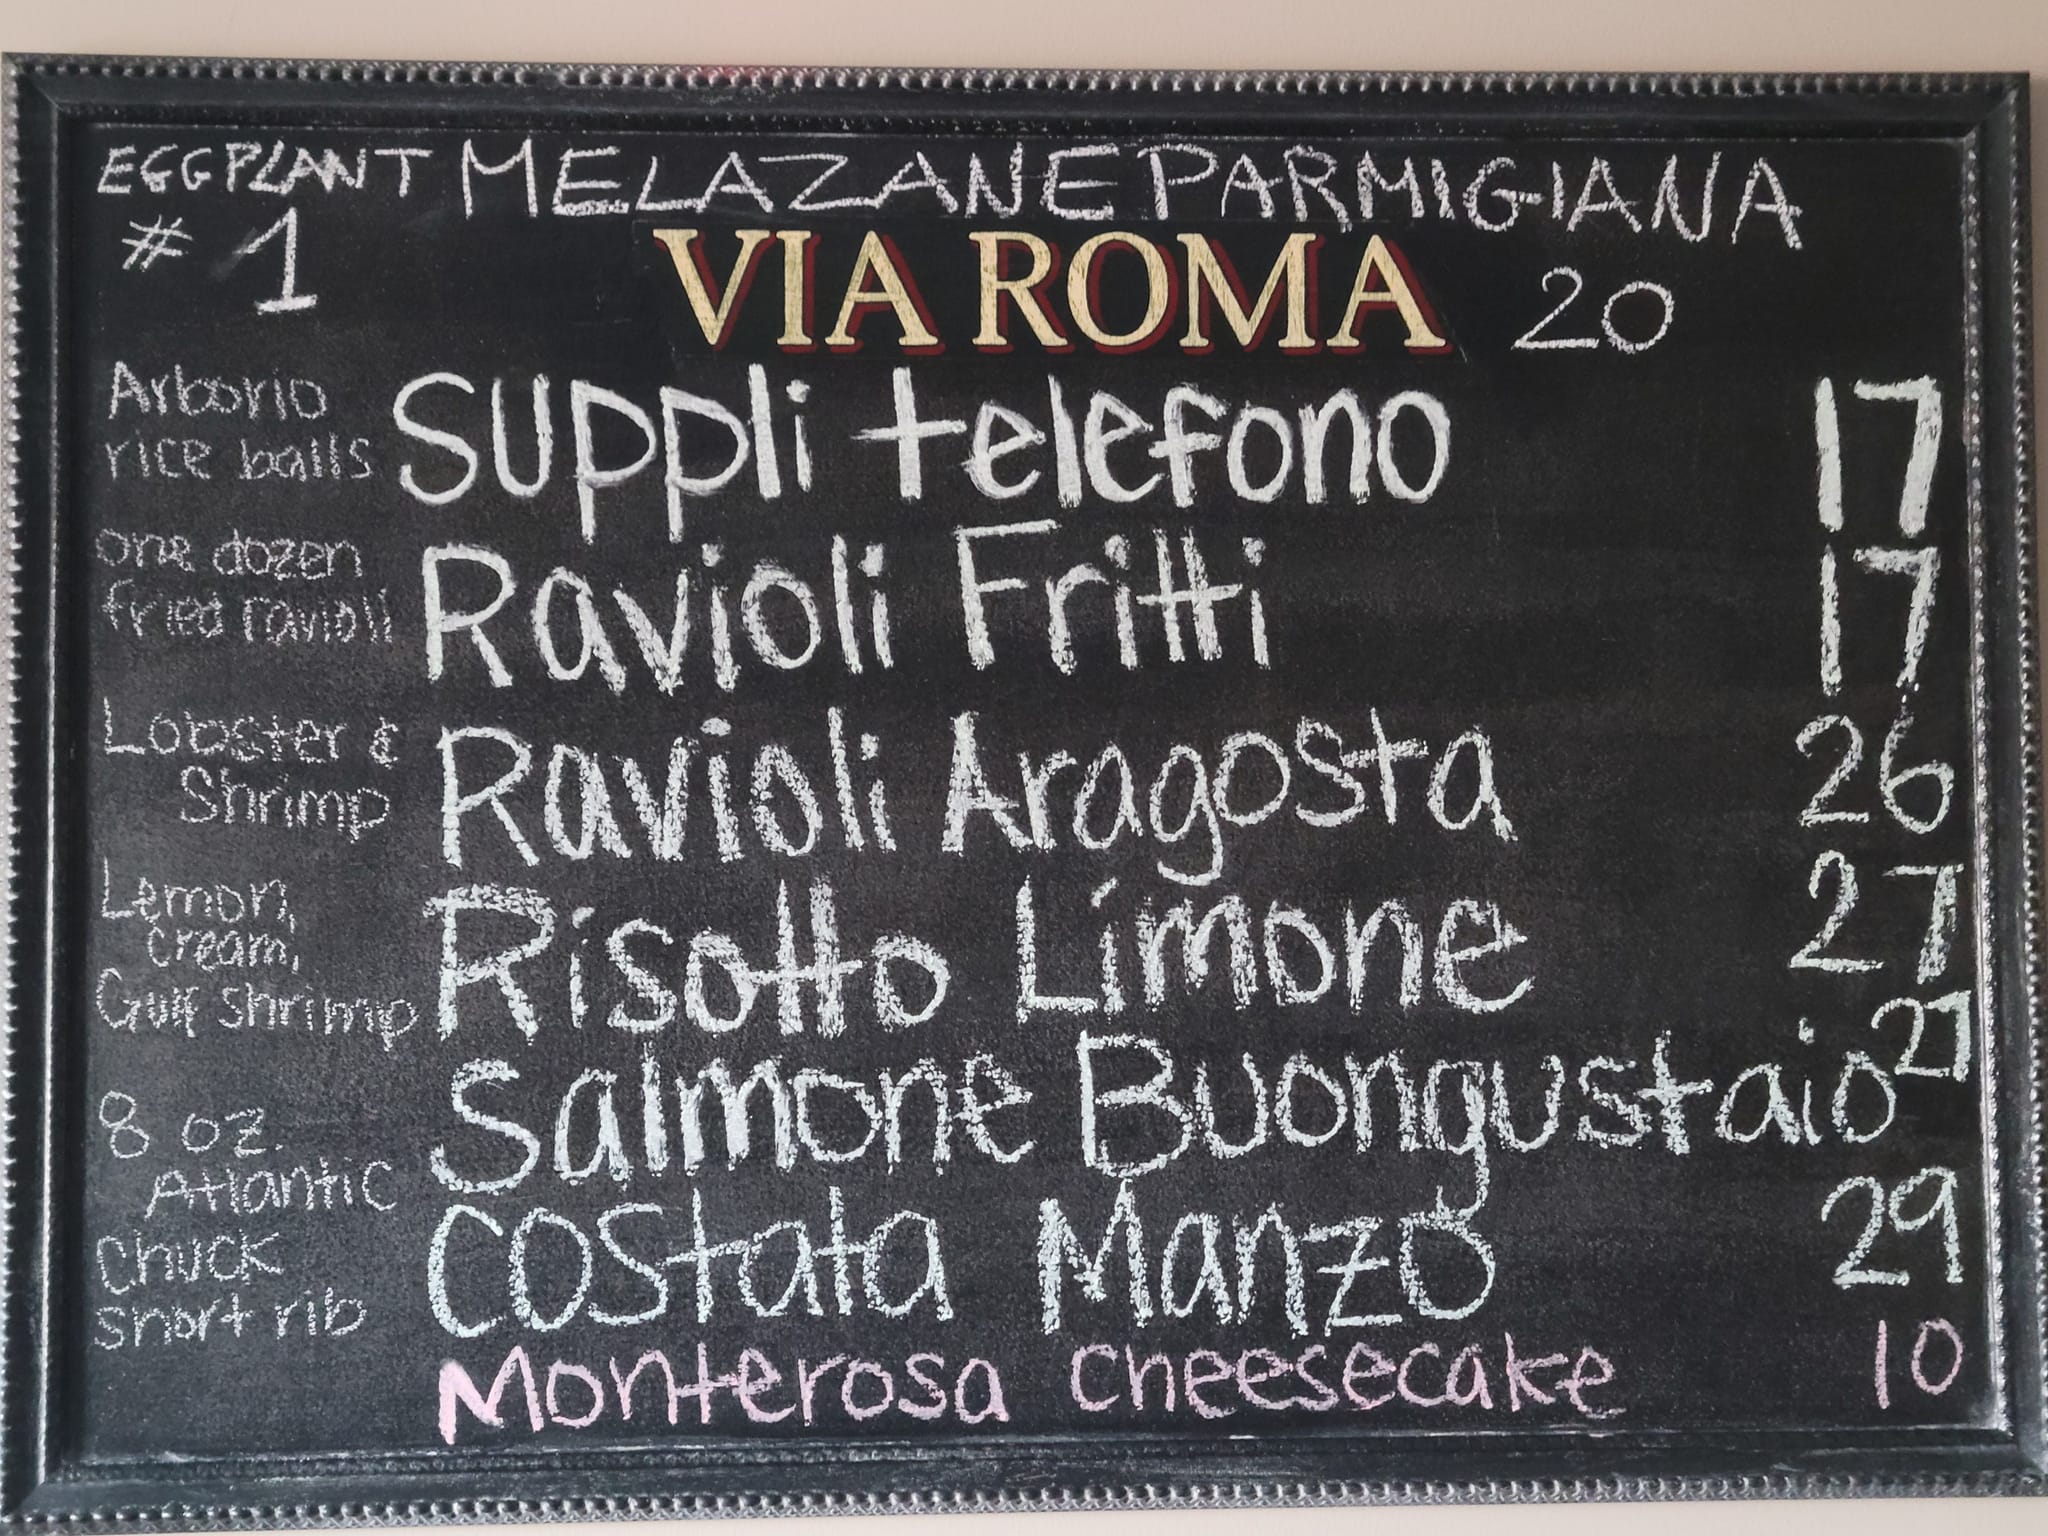 EGGPLANT MELAZANE PARMIGIANA
# 1
VIA ROMA 20
Arborio
rice balls
Suppli telefono 17
one dozen
fried ravioli
Ravioli Fritti 17
Lobster &
Shrimp
Ravioli Aragosta 26
Lemon,
cream,
Gulf shrimp
Risotto Limone 27
8 oz.
Atlantic
Salmone Buongustaio 27
Chuck
short rib
Costata Manzo 29
Monterosa Cheesecake 10